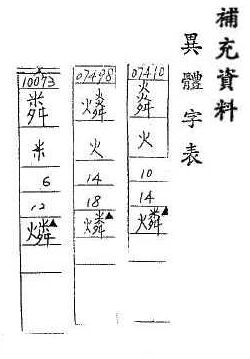 補充資料
異體字表
07410
㷠
火
10
14
燐▲
07498
火
14
18
燐▲
10073
粦
米
6
12
燐▲